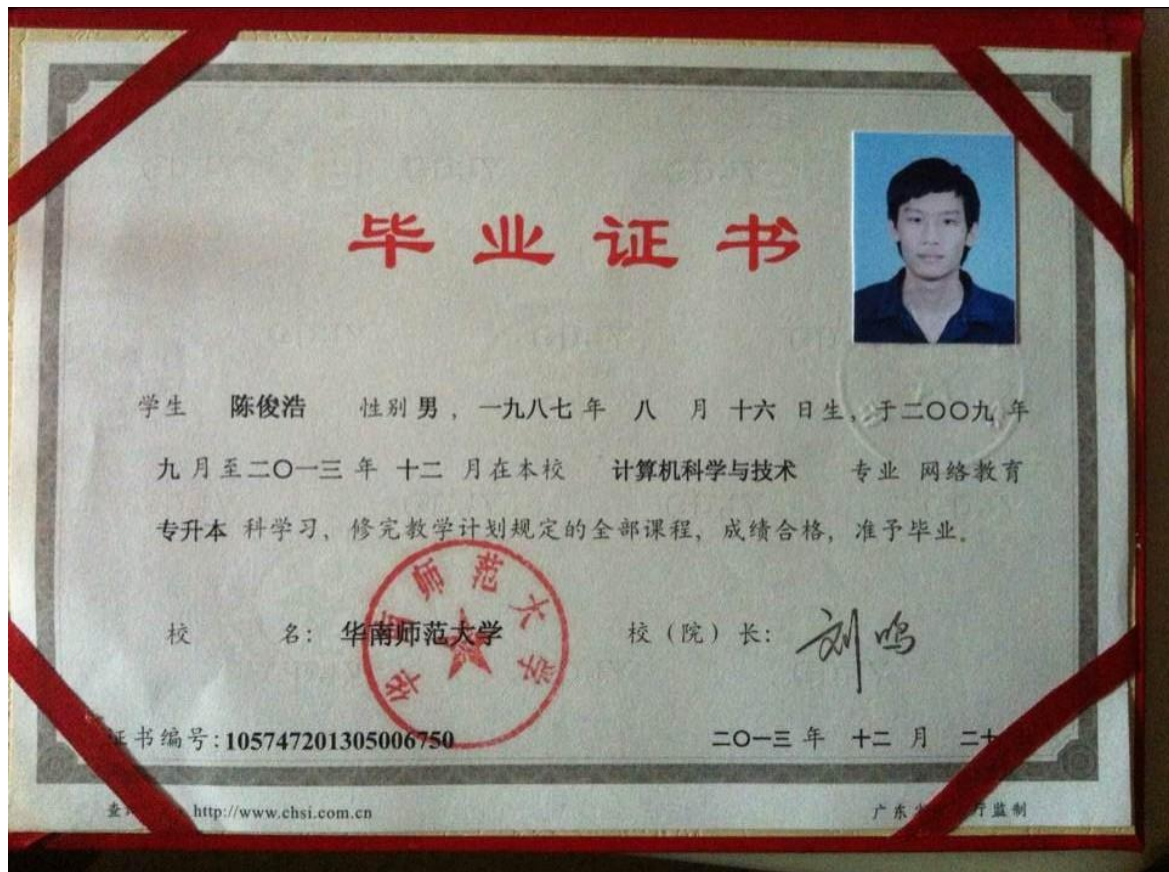 毕业证书
学生 陈俊浩 性别 男 , 一九八七 年 八 月 十六 日生, 于二〇〇九 年
九 月至二〇一三 年 十二 月在本校 计算机科学与技术 专业 网络教育
专升本 科学习, 修完教学计划规定的全部课程, 成绩合格, 准予毕业。
校 名: 华南师范大学 校(院)长: 刘鸣
华南师范大学
证书编号:105747201305006750 二〇一三 年 十二 月 二十
http://www.chsi.com.cn 广东 厅监制